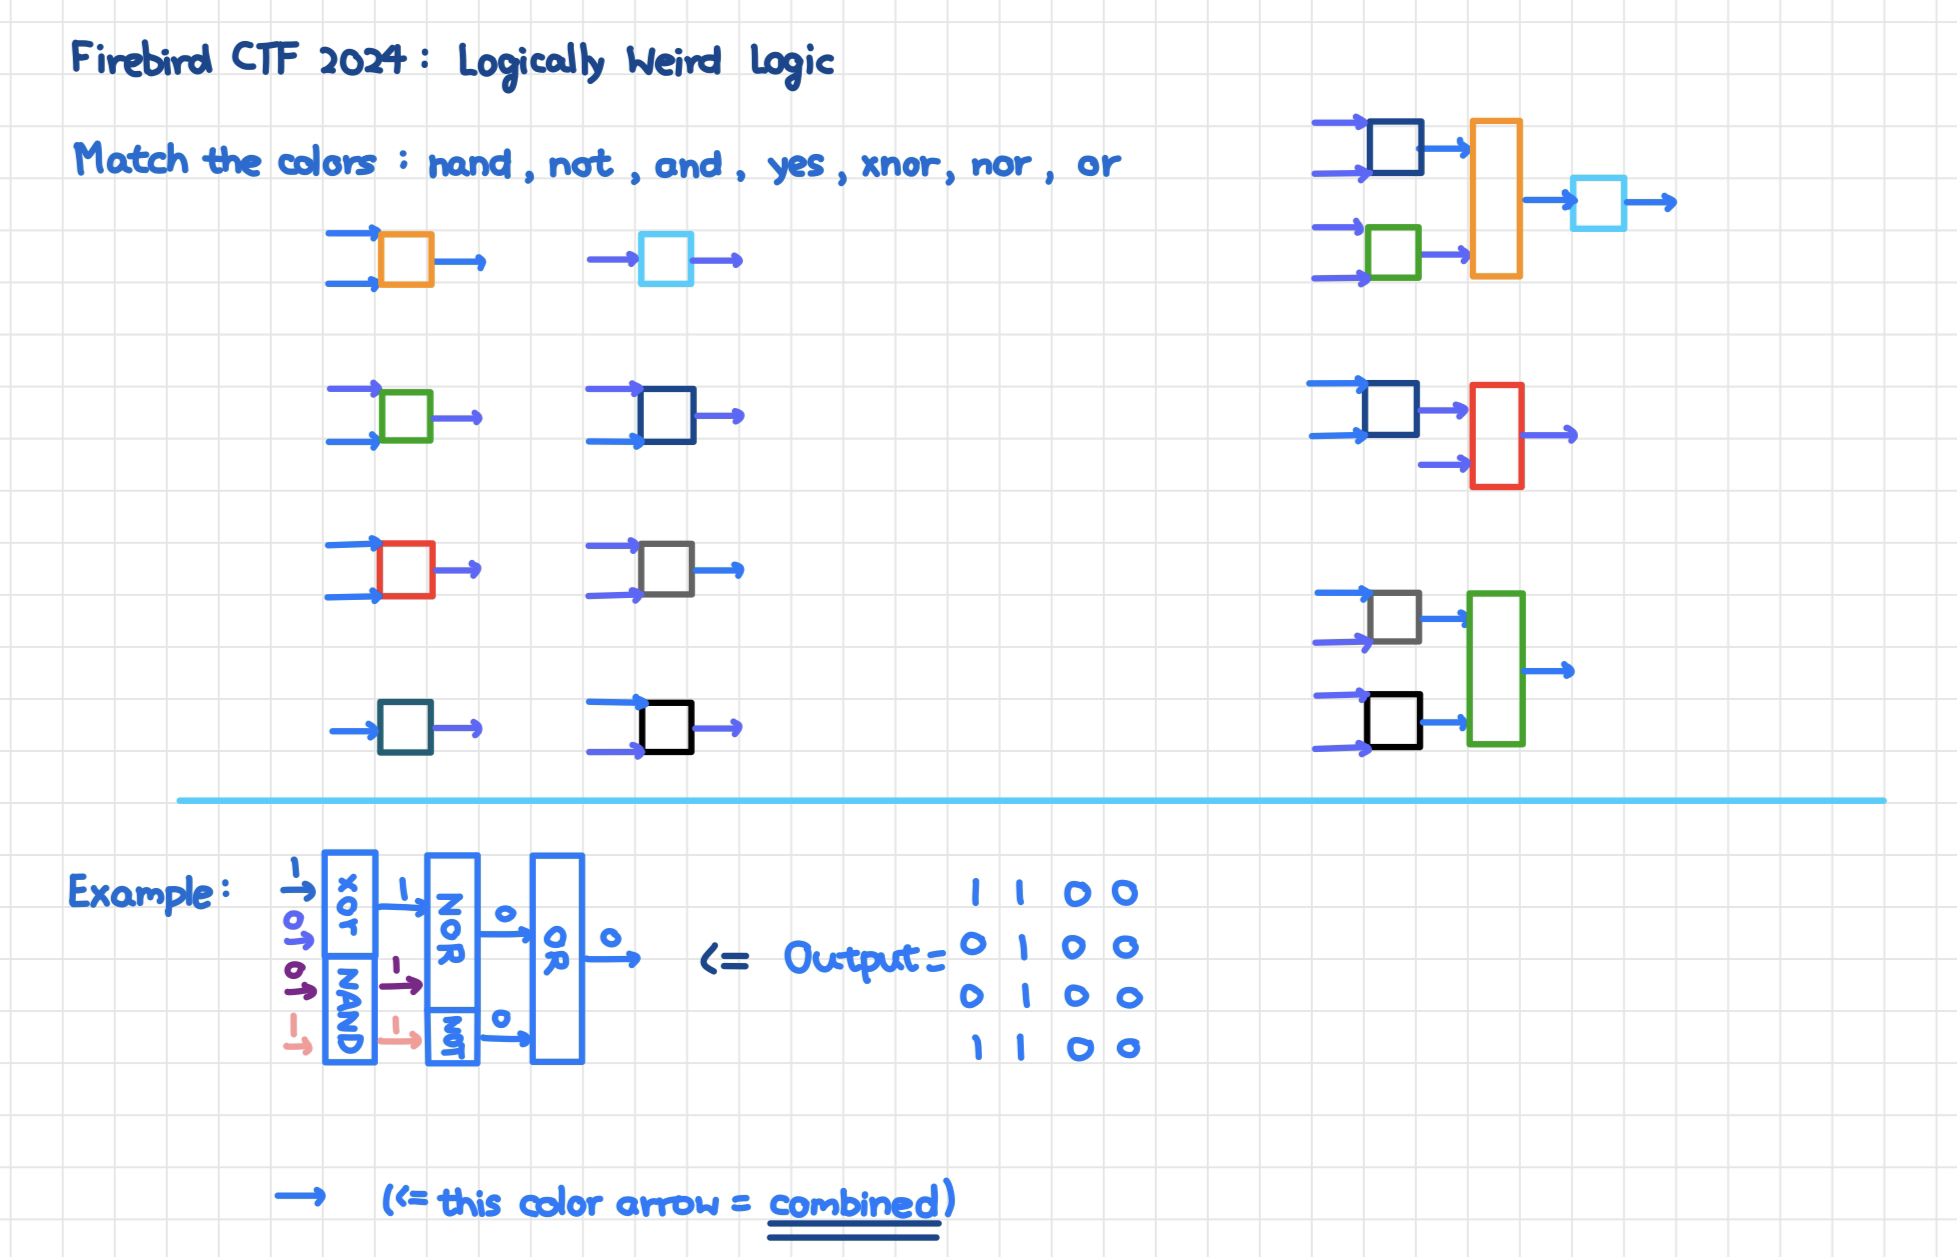 Firebird CTF 2024: Logically Weird Logic
Match the colors: nand, not, and, yes, xnor, nor, or
Example:
1
0
0
1
xor
NAND
1
1
1
NOR
NOT
0
0
OR
0
<= Output =
1 1 0 0
0 1 0 0
0 1 0 0
1 1 0 0
(<= this color arrow = combined)